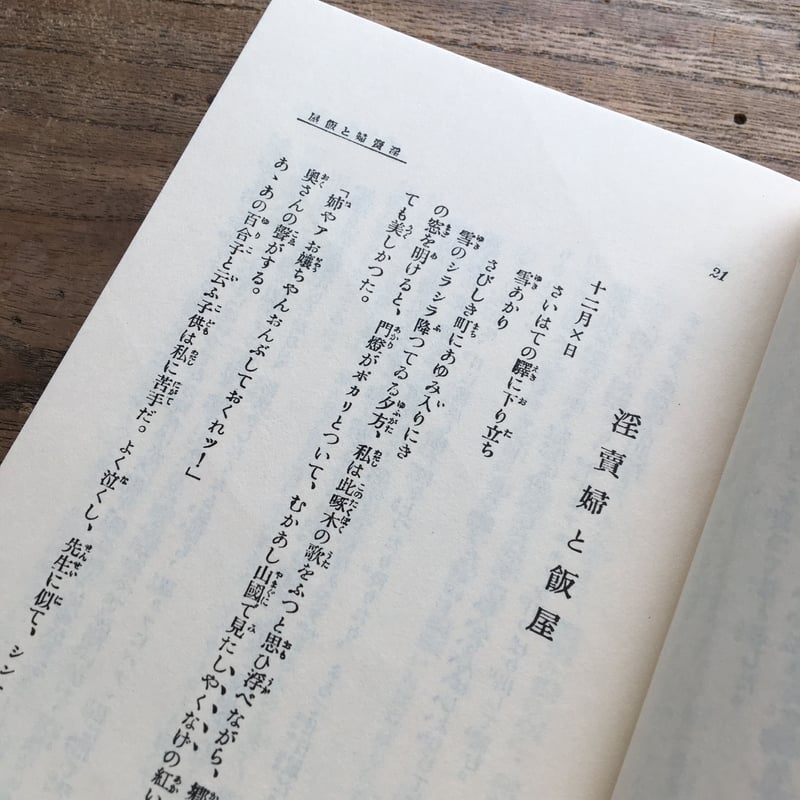 21
淫賣婦と飯屋
十二月×日
さいはての驛に下り立ち
雪あかり
さびしき町にあゆみ入りにき
雪のシラシラ降つてゐる夕方、私は此啄木の歌をふつと思ひ浮べながら、郷
の窓を明けると、門燈がポカリとついて、むかあし山國で見たしやくなげの紅い
ても美しかつた。
「姉やアお孃ちやんおんぶしておくれツ！」
奥さんの聲がする。
あゝあの百合子と云ふ子供は私に苦手だ。よく泣くし、先生に似て、シン
淫賣婦と飯屋